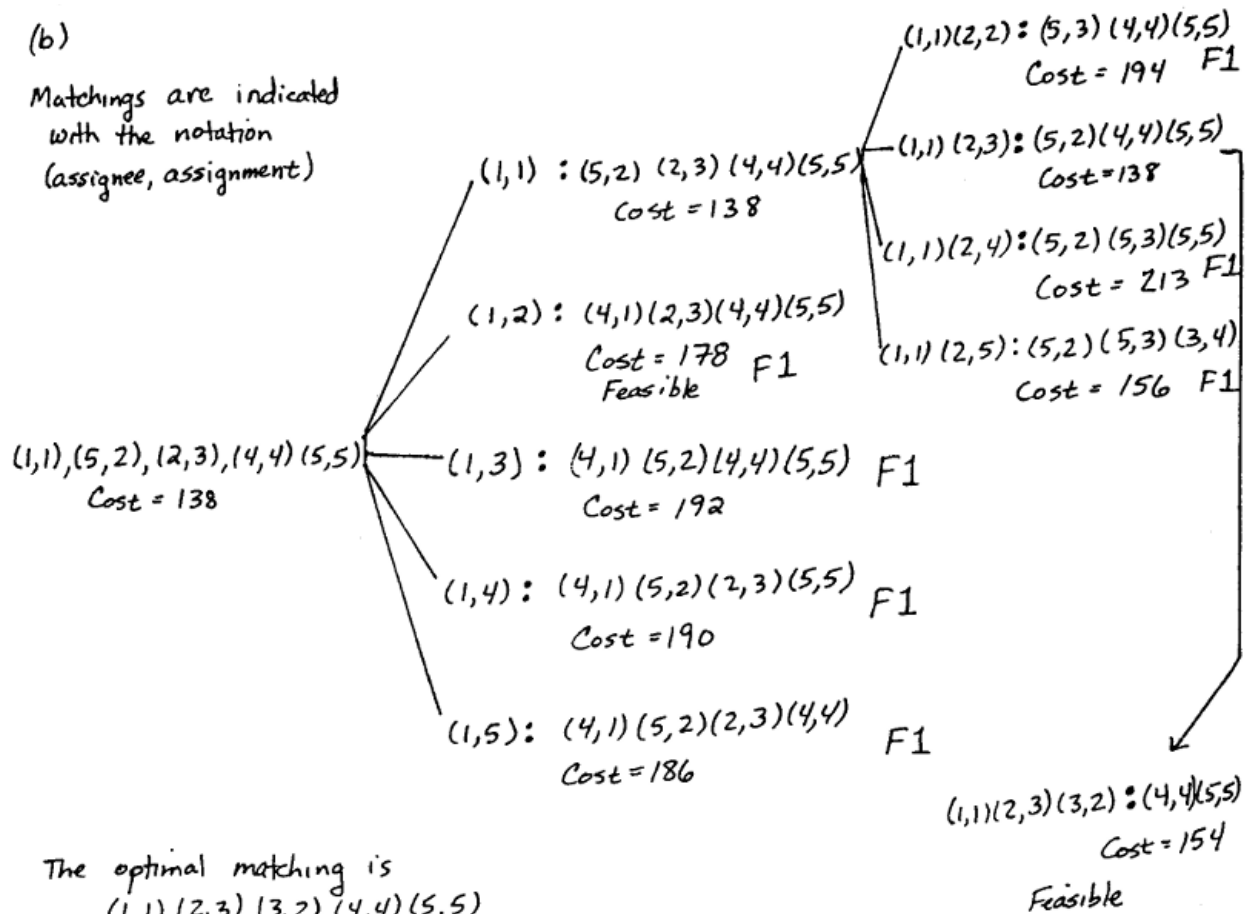 (b)
Matchings are indicated
with the notation
(assignee, assignment)
(1,1),(5,2),(2,3),(4,4)(5,5)
Cost = 138
(1,1) : (5,2) (2,3) (4,4)(5,5)
Cost = 138
(1,2): (4,1)(2,3)(4,4)(5,5)
Cost = 178 F1
Feasible
(1,3): (4,1) (5,2)(4,4)(5,5) F1
Cost = 192
(1,4): (4,1)(5,2)(2,3)(5,5) F1
Cost = 190
(1,5): (4,1)(5,2)(2,3)(4,4) F1
Cost = 186
(1,1)(2,2): (5,3) (4,4)(5,5)
Cost = 194 F1
(1,1) (2,3): (5,2)(4,4)(5,5)
Cost = 138
(1,1)(2,4): (5,2)(5,3)(5,5)
Cost = 213 F1
(1,1) (2,5): (5,2)(5,3)(3,4)
Cost = 156 F1
(1,1)(2,3)(3,2): (4,4)(5,5)
Cost = 154
Feasible
The optimal matching is
(1,1) (2,3) (3,2) (4,4) (5,5)